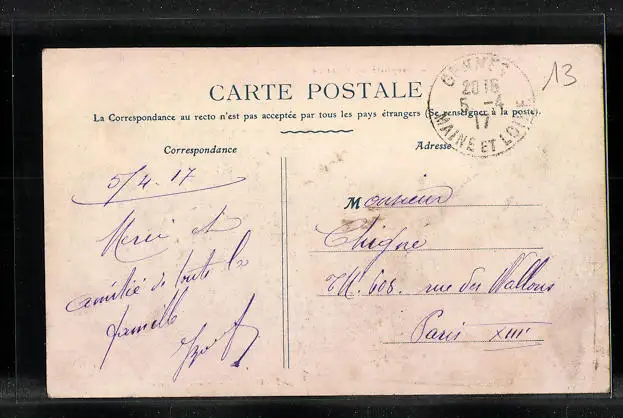 CARTE POSTALE
La Correspondance au recto n'est pas acceptée par tous les pays étrangers (Se renseigner à la poste).
Correspondance
Adresse
GENNES
20 15
5 -4
17
MAINE ET LOIRE
13
5/4. 17
Merci et
amitié de toute la
famille
Monsieur
Chigne
rue des Wallons
Paris XIII